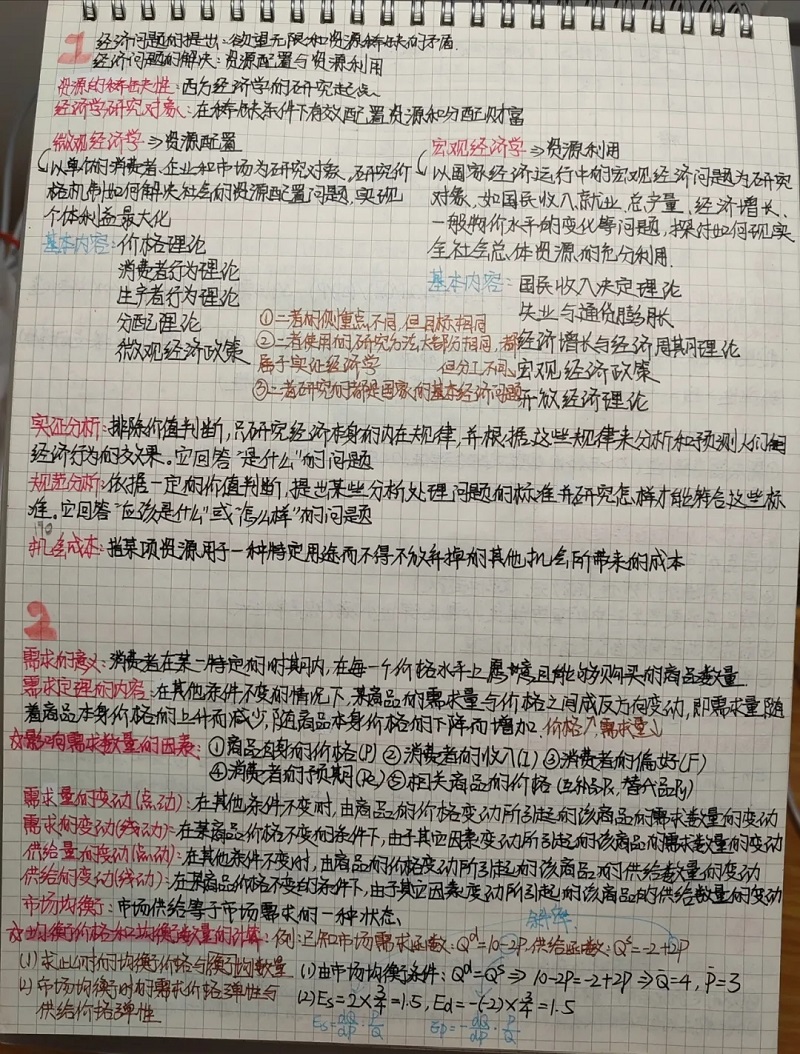 1 经济问题的提出:欲望无限和资源稀缺的矛盾.
经济问题的解决:资源配置与资源利用
资源的稀缺性:西方经济学的研究起点.
经济学研究对象:在稀缺条件下有效配置资源和分配财富
微观经济学⇒资源配置
以单个的消费者、企业和市场为研究对象、研究价
格机制如何解决社会的资源配置问题,实现
个体利益最大化
基本内容:价格理论
消费者行为理论
生产者行为理论
分配理论
微观经济政策
宏观经济学⇒资源利用
以国家经济运行中的宏观经济问题为研究
对象、如国民收入、就业、总产量、经济增长、
一般物价水平的变化等问题,探讨如何现实
全社会总体资源的充分利用.
基本内容:国民收入决定理论
失业与通货膨胀
经济增长与经济周期理论
宏观经济政策
开放经济理论
①二者的侧重点不同,但目标相同
②二者使用的研究方法大部分相同,都
属于实证经济学 但分工不同
③二者研究的都是国家的基本经济问题
实证分析:排除价值判断,只研究经济本身的内在规律,并根据这些规律来分析和预测人们
经济行为的效果。它回答“是什么”的问题
规范分析:依据一定的价值判断,提出某些分析处理问题的标准并研究怎样才能符合这些标
准。它回答“应该是什么”或“怎么样”的问题
机会成本:指某项资源用于一种特定用途而不得不放弃掉的其他机会所带来的成本
2
需求的意义:消费者在某一特定的时期内,在每一个价格水平上愿意且能够购买的商品数量
需求定理的内容:在其他条件不变的情况下,某商品的需求量与价格之间成反方向变动,即需求量随
着商品本身价格的上升而减少,随商品本身价格的下降而增加.价格↑需求量↓
☆影响需求数量的因素:①商品自身的价格(P) ②消费者的收入(I) ③消费者的偏好(F)
④消费者的预期(Pe) ⑤相关商品的价格(互补品Px,替代品Py)
需求量的变动(点动):在其他条件不变时,由商品的价格变动所引起的该商品的需求数量的变动
需求的变动(线动):在某商品价格不变的条件下,由于其它因素变动所引起的该商品的需求数量的变动
供给量的变动(点动):在其他条件不变时,由商品的价格变动所引起的该商品的供给数量的变动
供给的变动(线动):在某商品价格不变的条件下,由于其它因素变动所引起的该商品的供给数量的变动
市场均衡:市场供给等于市场需求的一种状态
斜率
☆均衡价格和均衡数量的计算:例:已知市场需求函数:Qᵈ=10-2P.供给函数:Qˢ=-2+2P
(1)求此时的均衡价格与均衡数量
(2)市场均衡时的需求价格弹性与
供给价格弹性
(1)由市场均衡条件:Qᵈ=Qˢ⇒10-2P=-2+2P⇒Q̄=4,P̄=3
(2)Es=2×3/4=1.5,Ed=-(-2)×3/4=1.5
Es=dQ/dP·P/Q Ep=-dQ/dP·P/Q